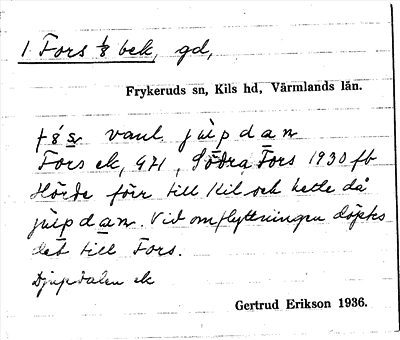 1. Fors ⅛ bek, gd,
Frykeruds sn, Kils hd, Värmlands län.
fó̱s̱ vanl. jùpdan
Fors ek, GH, Södra Fors 1930 fb
Hörde förr till Kil och hette då
jùpdan. Vid omflyttningen döptes
det till Fors.
Djupdalen ek
Gertrud Erikson 1936.